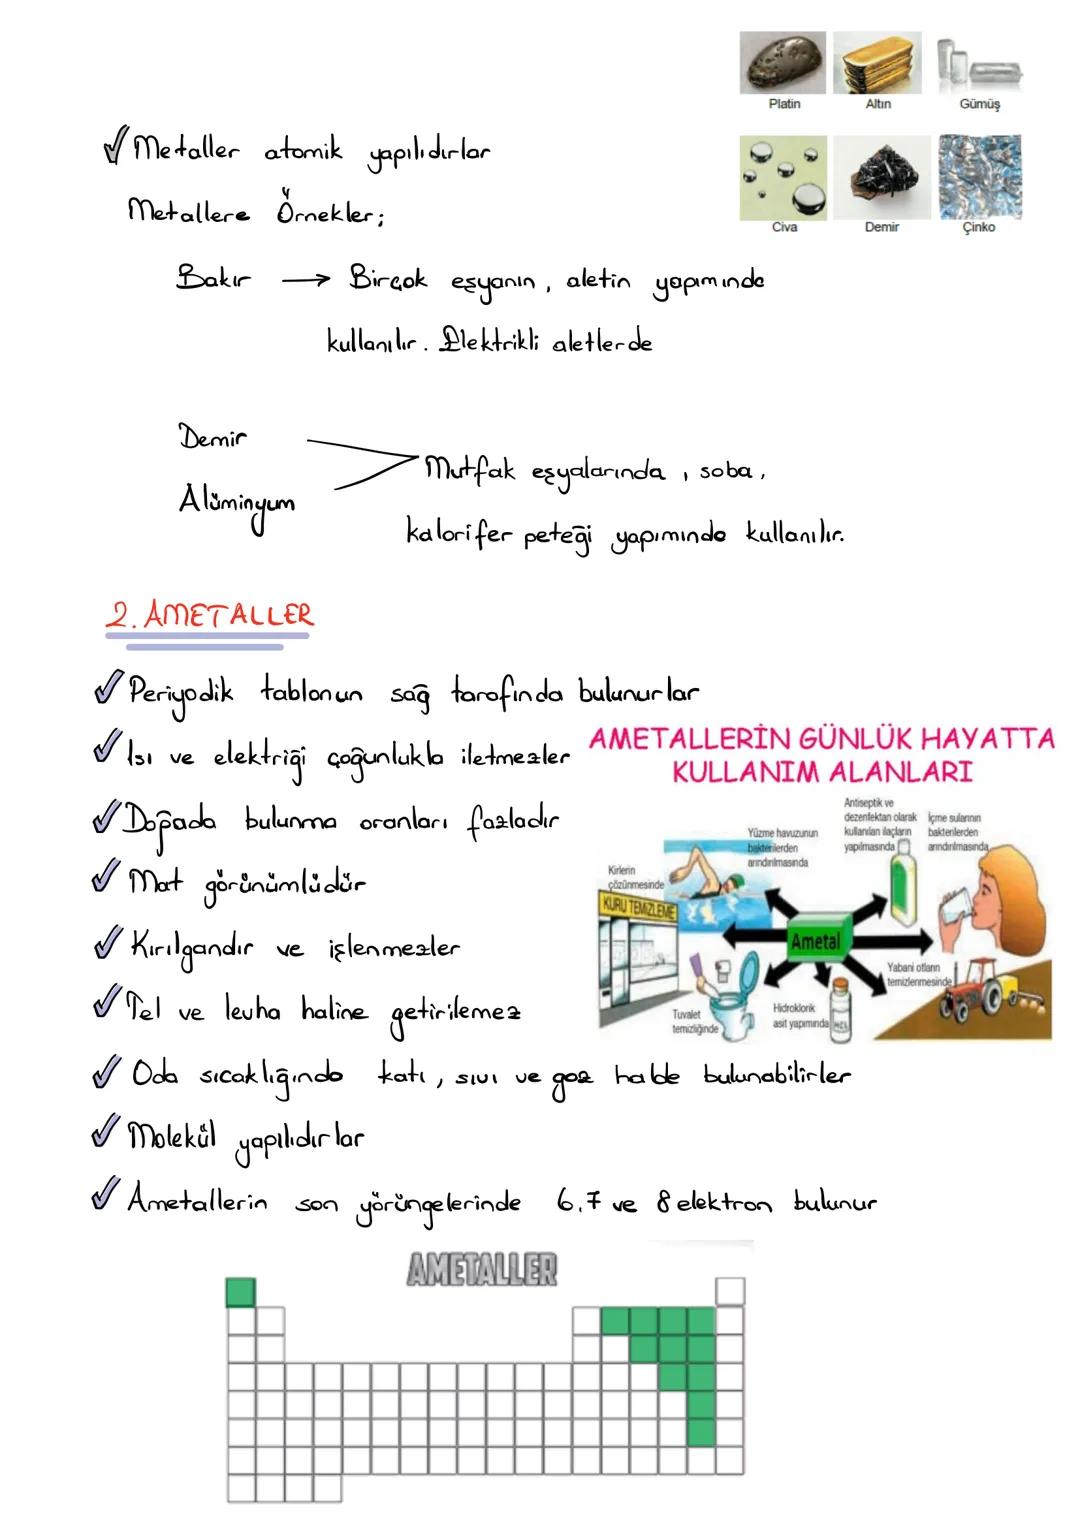 Platin
Altın
Gümüş
✓ Metaller atomik yapılıdırlar
Metallere Örnekler;
Civa
Demir
Çinko
Bakır → Birçok eşyanın, aletin yapımında
kullanılır. Elektrikli aletlerde
Demir
Alüminyum
Mutfak eşyalarında, soba,
kalorifer peteği yapımında kullanılır.
2. AMETALLER
✓ Periyodik tablonun sağ tarafında bulunurlar
✓ Isı ve elektriği çoğunlukla iletmezler
✓ Doğada bulunma oranları fazladır
✓ Mat görünümlüdür
✓ Kırılgandır ve işlenmezler
✓ Tel ve levha haline getirilemez
AMETALLERİN GÜNLÜK HAYATTA
KULLANIM ALANLARI
Kirlerin
çözünmesinde
KURU TEMİZLEME
Yüzme havuzunun
bakterilerden
arındırılmasında
Antiseptik ve
dezenfektan olarak
kullanılan ilaçların
yapılmasında
İçme sularının
bakterilerden
arındırılmasında
Ametal
Tuvalet
temizliğinde
Hidroklorik
asit yapımında
HCL
Yabani otların
temizlenmesinde
✓ Oda sıcaklığında katı, sıvı ve gaz halde bulunabilirler
✓ Molekül yapılıdırlar
✓ Ametallerin son yörüngelerinde 6,7 ve 8 elektron bulunur
AMETALLER